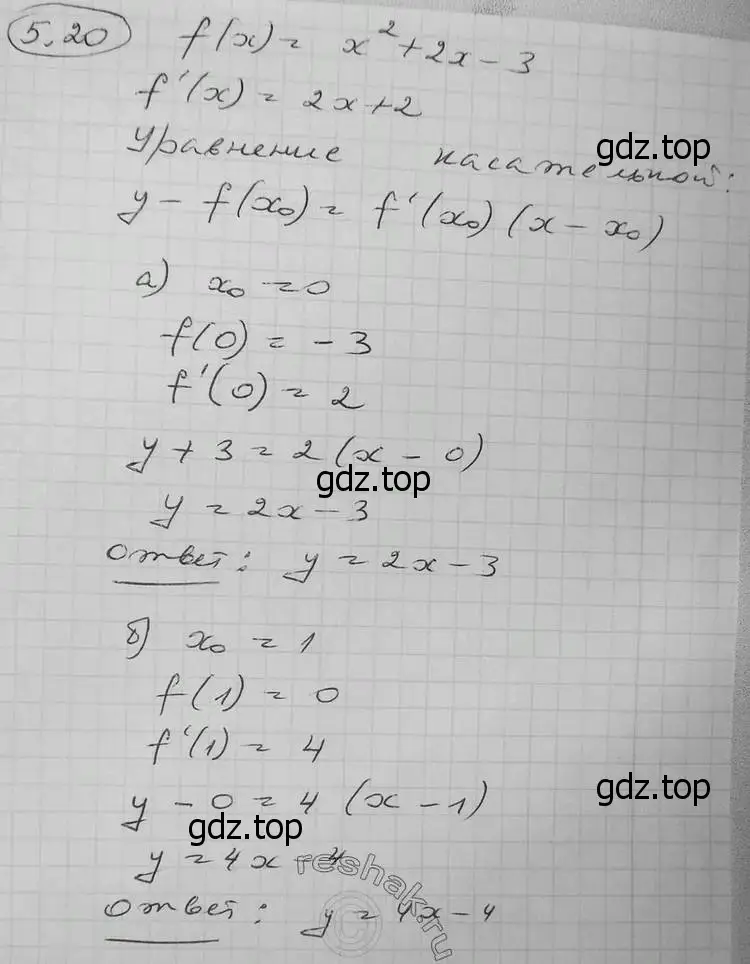 5.20 f(x) = x² + 2x - 3
f'(x) = 2x + 2
Уравнение касательной:
gdz.top
y - f(x₀) = f'(x₀) (x - x₀)
а) x₀ = 0
f(0) = - 3
f'(0) = 2
y + 3 = 2 (x - 0)
gdz.top
y = 2x - 3
Ответ: y = 2x - 3
б) x₀ = 1
f(1) = 0
f'(1) = 4
y - 0 = 4 (x - 1)
gdz.top
gdz.top
y = 4x - 4
reshak.ru
©
Ответ: y = 4x - 4